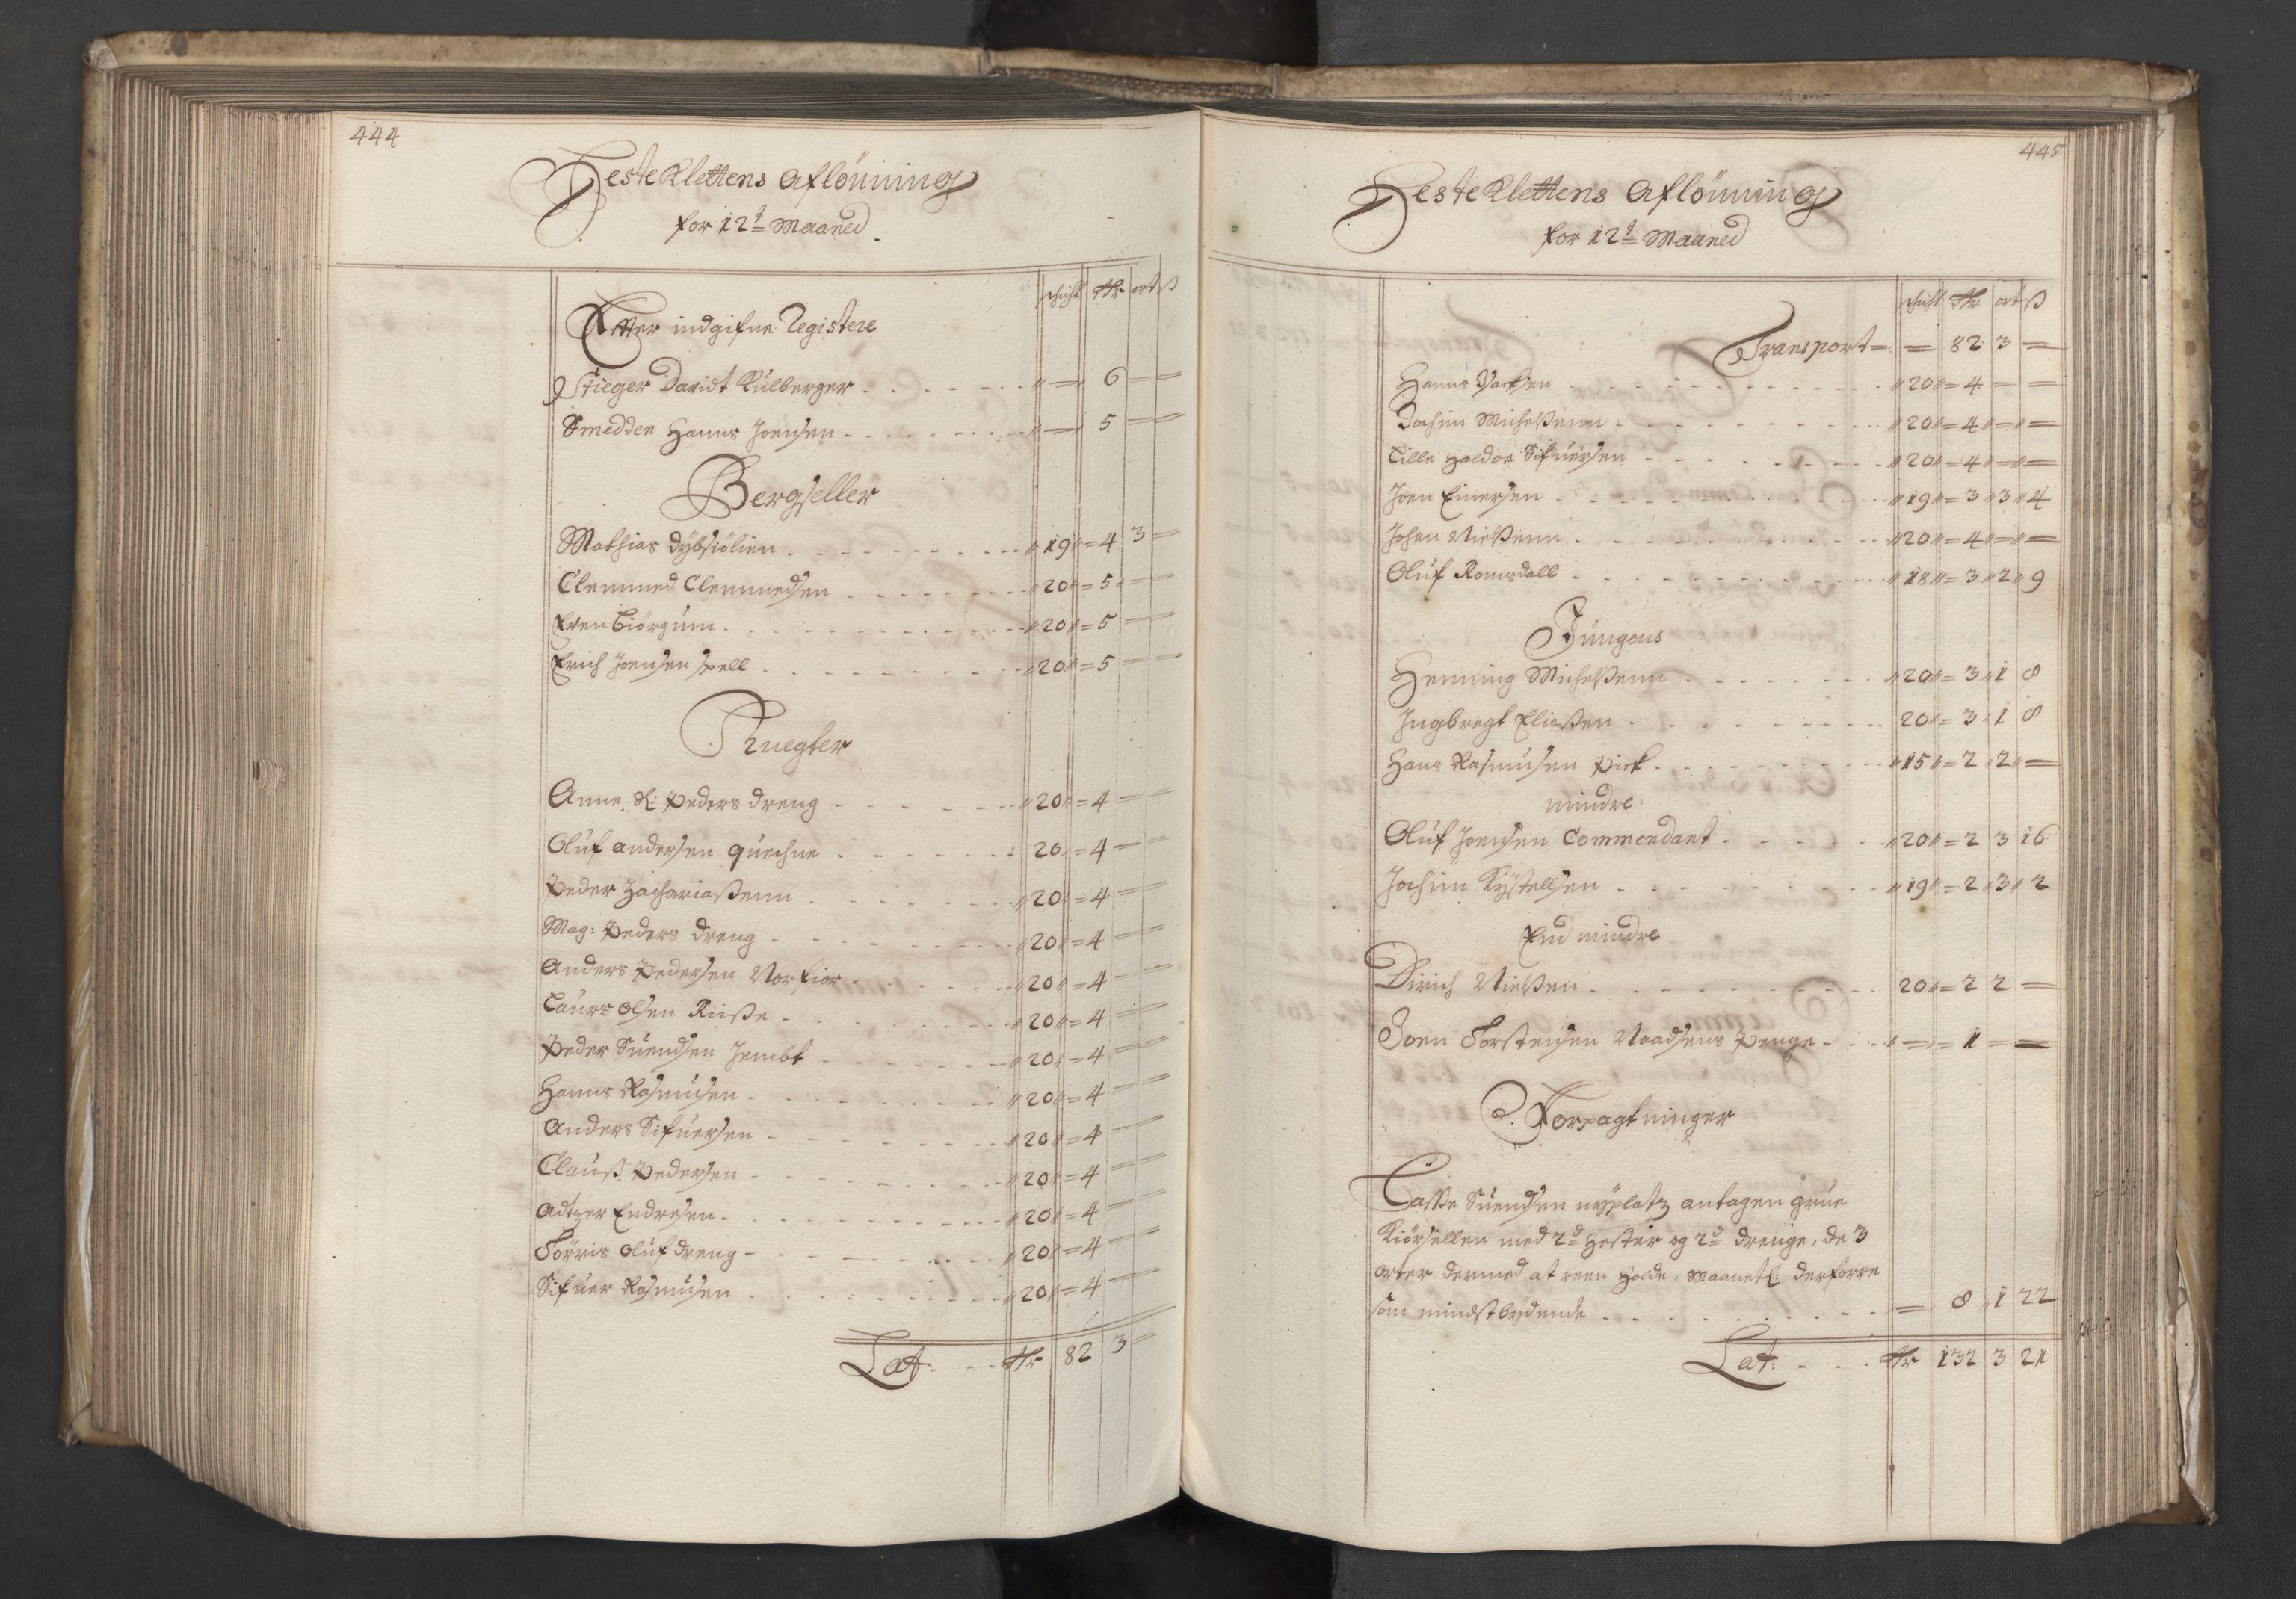 444
Hesteklettens Aflönning
for 12te Maaned.
schicht Rdr ort ß
Efter indgifne Registere
Stieger Davidt Kulberger - - - - - " = 6 = =
Smedden Hanns Joensen - - - - - " = 5 = =
Bergseller
Mathias dÿbsiölien - - - - - " 19 " = 4 3 =
Clemmed Clemmedsen - - - - - " 20 " = 5 = =
Even Biörgum - - - - - " 20 " = 5 = =
Erich Joensen spell - - - - - " 20 " = 5 = =
Knegter
Anne: Sl: Peders dreng - - - - - " 20 " = 4 = =
Oluf andersen quechne - - - - - 20 = 4 = =
Peder Zachariaßenn - - - - - " 20 " = 4 = =
Mag: Peders dreng - - - - - " 20 " = 4 = =
Anders Pedersen Norfior - - - - - " 20 " = 4 = =
Laurs Olsen Riiße - - - - - " 20 " = 4 = =
Peder Suendsen Jembt - - - - - " 20 " = 4 = =
Hanns Rasmusen - - - - - " 20 " = 4 = =
Anders Sifuersen - - - - - " 20 " = 4 = =
Clauß Pedersen - - - - - " 20 " = 4 = =
Adtzer Endresen - - - - - " 20 " = 4 = =
Törris Oluf dreng - - - - - " 20 " = 4 = =
Sifuer Rasmusen - - - - - " 20 " = 4 = =
Lat: - - Rdr 82 3 =
445
Hesteklettens Aflönning
for 12te Maaned
schicht Rdr ort ß
Transport = = 82 3 =
Hanns - - - - - " 20 " = 4 = =
Jochim Michelßenn - - - - - " 20 " = 4 " = " =
Lille Haldor Sifuersen - - - - - " 20 " = 4 " = " =
Joen Einersen - - - - - " 19 " = 3 " 3 " 4
Johan Nielßenn - - - - - " 20 " = 4 " = " =
Oluf Romsdall - - - - - " 18 " = 3 " 2 " 9
Jungens
Henning Michelßenn - - - - - " 20 " = 3 " 1 8
Ingbregt Eliaßen - - - - - 20 " = 3 " 1 8
Hans Rasmusen - - - - - " 15 " = 2 " 2 " =
mindre
Oluf Joensen Commendant - - - - - " 20 " = 2 3 16
Jochim Kÿstellsen - - - - - " 19 " = 2 " 3 " 2
End mindre
Dirich Nielßen - - - - - 20 " = 2 2 =
Joen Torstensen Naadsens Penge - - - " = " = 1 = =
Forpagtninger
Lasse Suendsen nÿplatz antagen grue
Kiörsellen med 2de Hester og 2de drenge, de 3
orter dermed at reen Holde, Maanetl: derforre
som mindstbÿdende - - - - - = 8 " 1 22
Lat: - - - Rdr 132 3 21